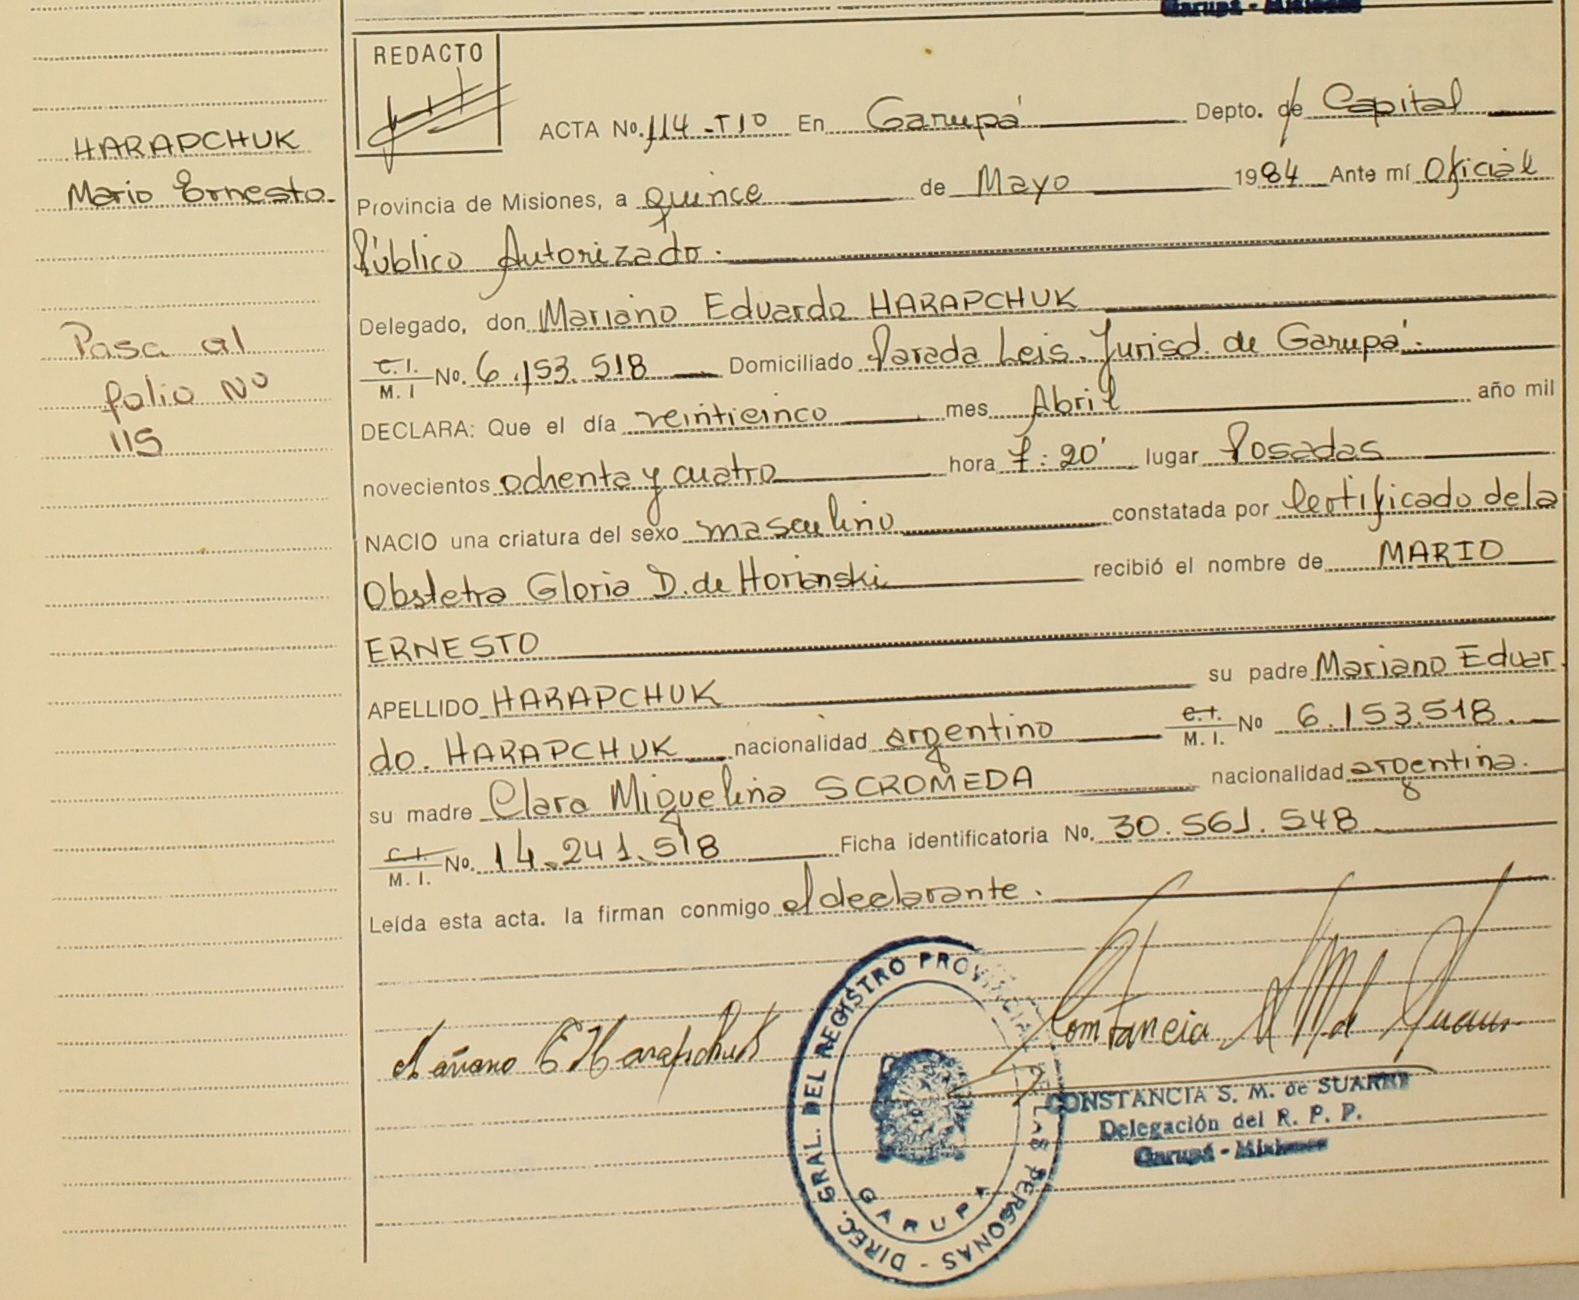 Garupá - Misiones
REDACTO
ACTA No. 114 - T1º En Garupá Depto. de Capital
HARAPCHUK
Mario Ernesto.
Provincia de Misiones, a quince de Mayo 1984 Ante mí Oficial
Público Autorizado.
Delegado, don Mariano Eduardo HARAPCHUK
Pasa al
folio Nº
115
C. I.
M. I No. 6.153.518 Domiciliado Parada Leis. Jurisd. de Garupá.
DECLARA: Que el día veinticinco mes Abril año mil
novecientos ochenta y cuatro hora 7:20' lugar Posadas
NACIO una criatura del sexo masculino constatada por Certificado de la
Obstetra Gloria D. de Horianski recibió el nombre de MARIO
ERNESTO
APELLIDO HARAPCHUK su padre Mariano Eduar
do. HARAPCHUK nacionalidad argentino C. I. M. I. No 6.153.518.
su madre Clara Miguelina SCROMEDA nacionalidad argentina.
C. I.
M. I. No. 14.241.518 Ficha identificatoria No. 30.561.548
Leída esta acta. la firman conmigo el declarante.
Mariano E Harapchuk
Constancia S M de Suarez
DIREC. GRAL. DEL REGISTRO PROVINCIAL DE LAS PERSONAS -
GARUPA
CONSTANCIA S. M. de SUAREZ
Delegación del R. P. P.
Garupá - Misiones